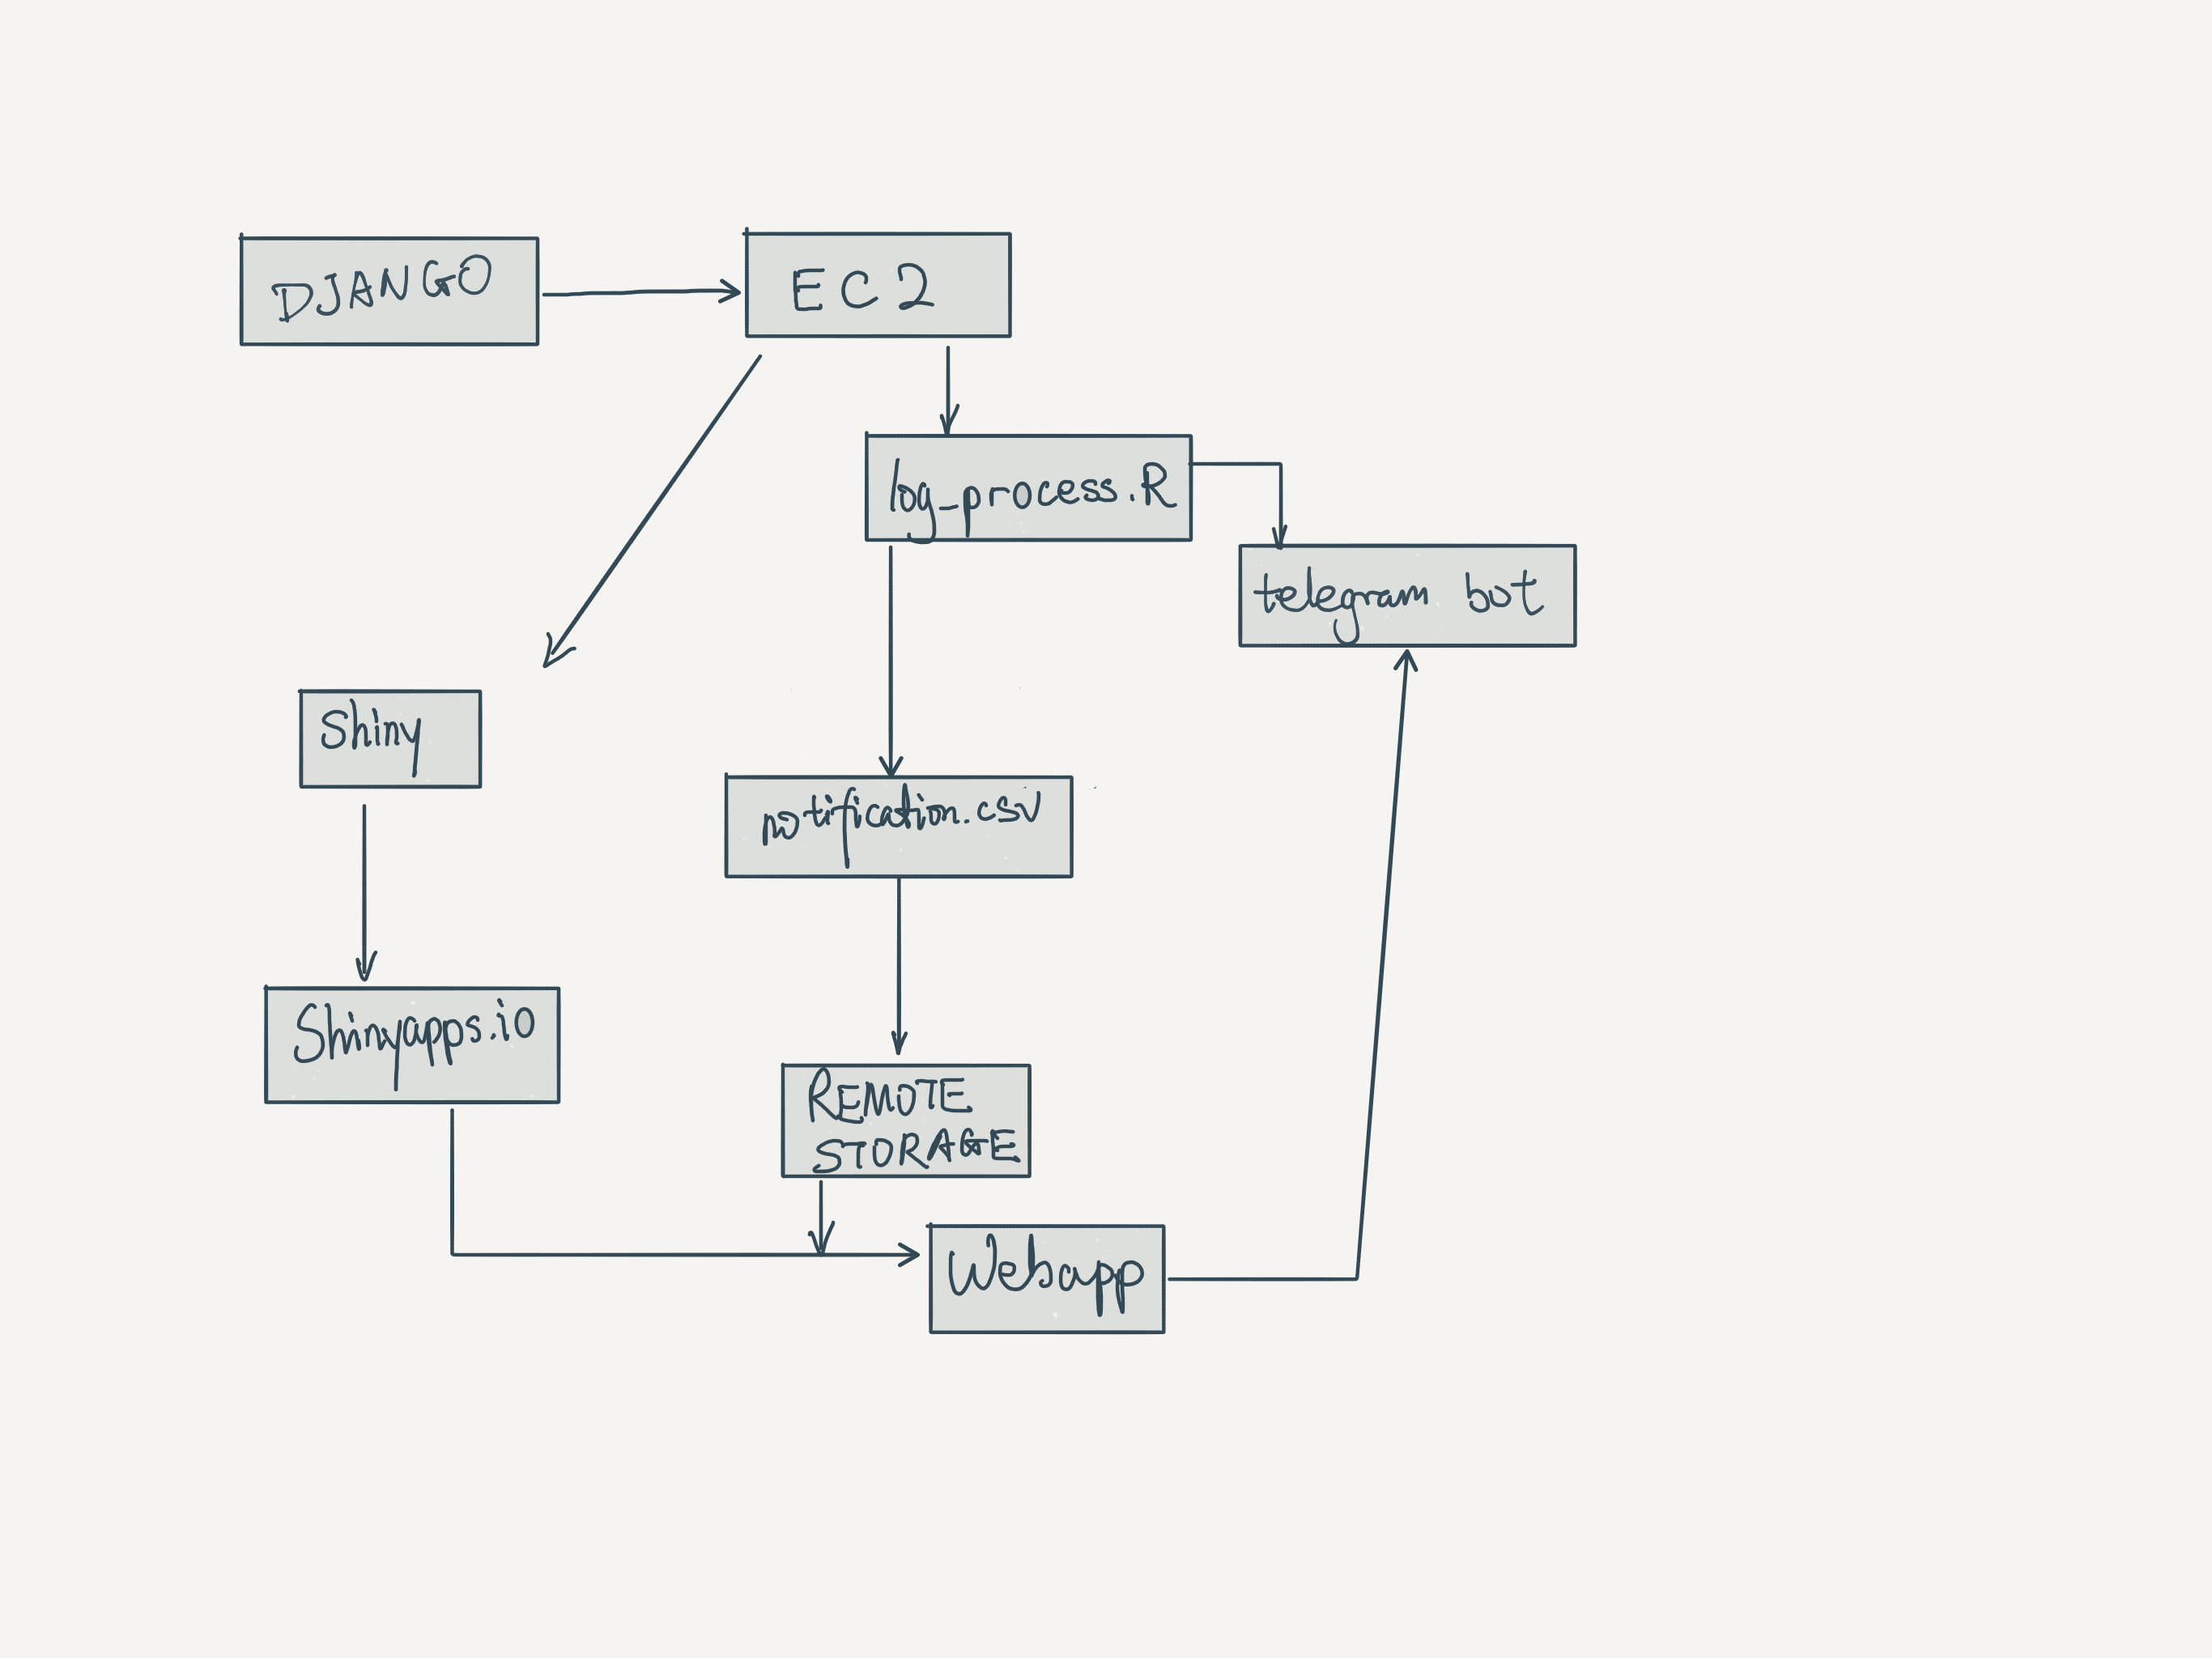 DJANGO
EC2
log_process.R
telegram bot
Shiny
notification.csv
Shinyapps.io
REMOTE
STORAGE
Webapp